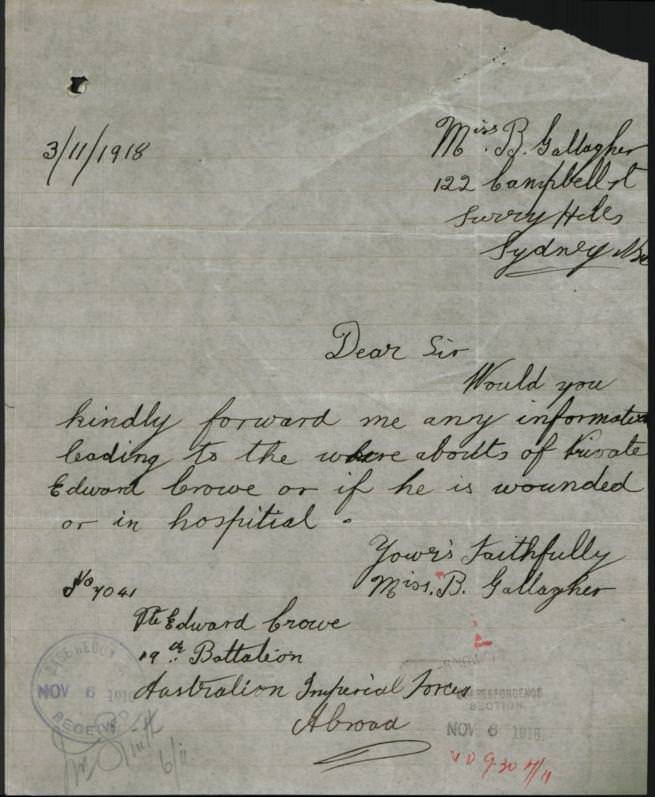 3/11/1918
Miss. B. Gallagher
122 Campbell st
Surry Hills
Sydney
Dear Sir
Would you
kindly forward me any information
leading to the where abouts of Private
Edward Crowe or if he is wounded
or in hospitial.
Your's Faithfully
Miss. B. Gallagher
No 7041
Pte Edward Crowe
19th Battalion
Australian Imperial Forces
Abroad
NOV 6 1918
RECEIVED
6/11
CORRESPONDENCE
SECTION
NOV 6 1918
9.30 7/11